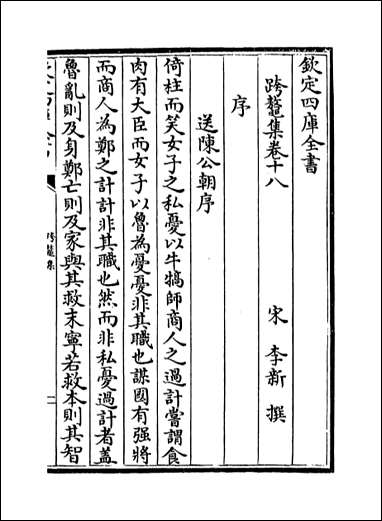 欽定四庫全書
跨鼇集卷十八
宋 李新 撰
序
送陳公朝序
倚柱而笑女子之私憂以牛犒師商人之過計嘗謂食
肉有大臣而女子以魯為憂憂非其職也謀國有强將
而商人為鄭之計計非其職也然而非私憂過計者蓋
魯亂則及身鄭亡則及家與其救末寧若救本則其智
跨鼇集